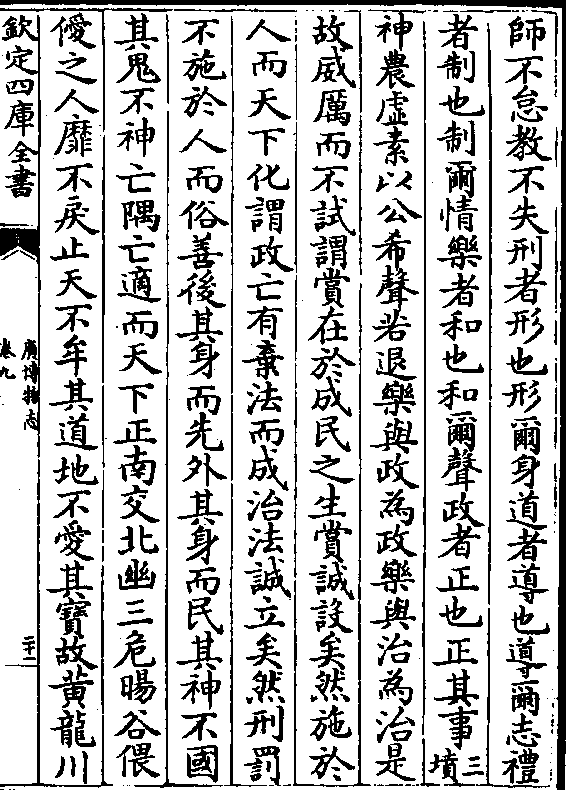 師不怠教不失刑者形也形爾身道者導也導爾志禮
者制也制爾情樂者和也和爾聲政者正也正其事三墳
神農虛素以公希聲若退樂與政為政樂與治為治是
故威厲而不試謂賞在於成民之生賞誠設矣然施於
人而天下化謂政亡有棄法而成治法誠立矣然刑罰
不施於人而俗善後其身而先外其身而民其神不國
其鬼不神亡隅亡適而天下正南交北幽三危暘谷偎
僾之人靡不戾止天不牟其道地不愛其寶故黃龍川
欽定四庫全書
廣博物志
卷九
二十二